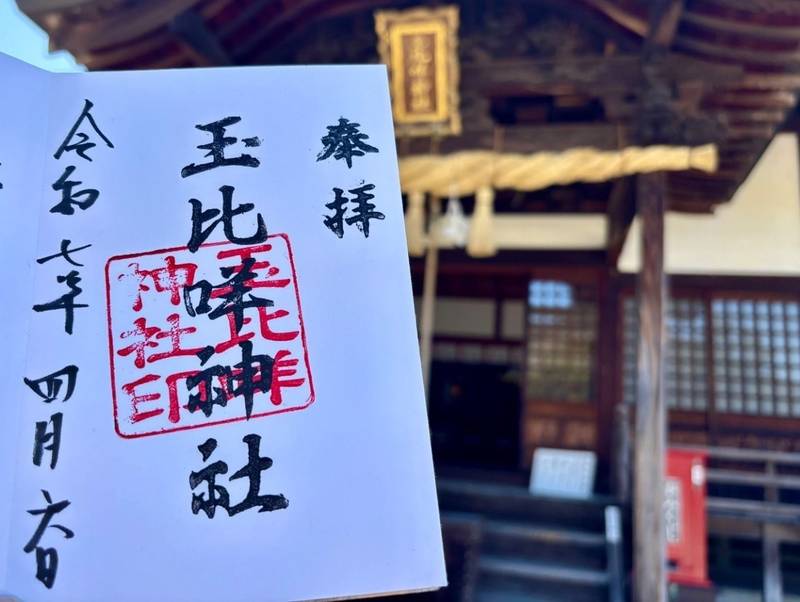 奉拝
玉比咩神社
玉比咩
神社印
令和七年四月六日